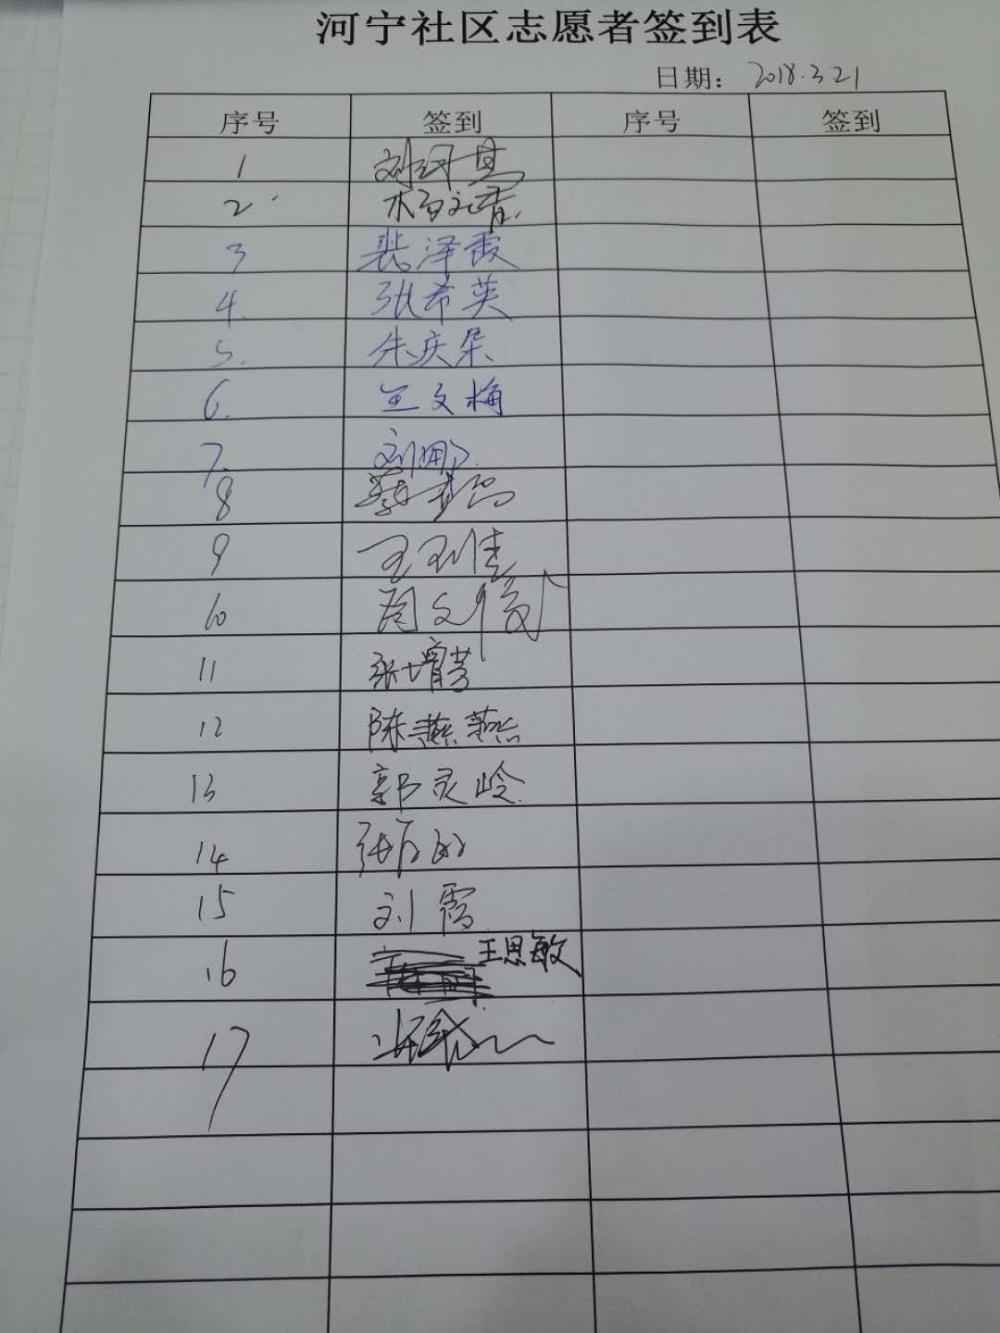 河宁社区志愿者签到表
日期： 2018.3.21
序号 签到 序号 签到
1 刘
2
3 裴泽霞
4. 张希英
5. 朱庆朵
6. 王文梅
7. 刘
8 蔡
9 王
10 周文
11 张增芳
12 陈燕燕
13 郭灵岭
14 张
15 刘霞
16 王思敏
17